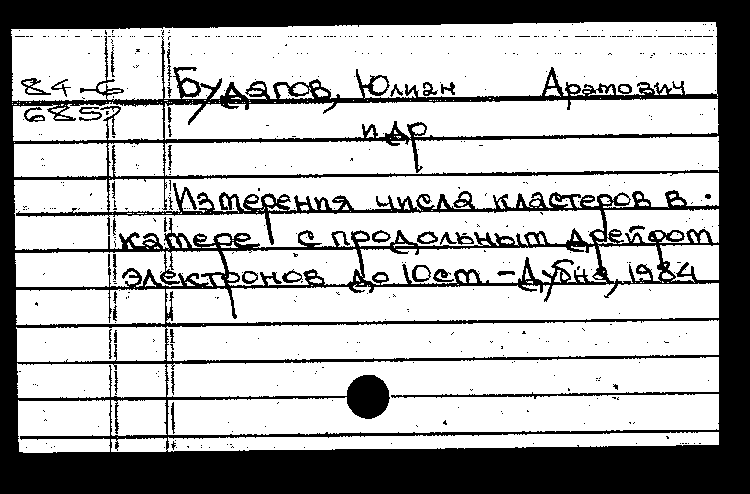 84-6 Будагов, Юлиан Арамович
6852 и др
Измерения числа кластеров в
камере с продольным дрейфом
электронов до 10 см. - Дубна, 1984